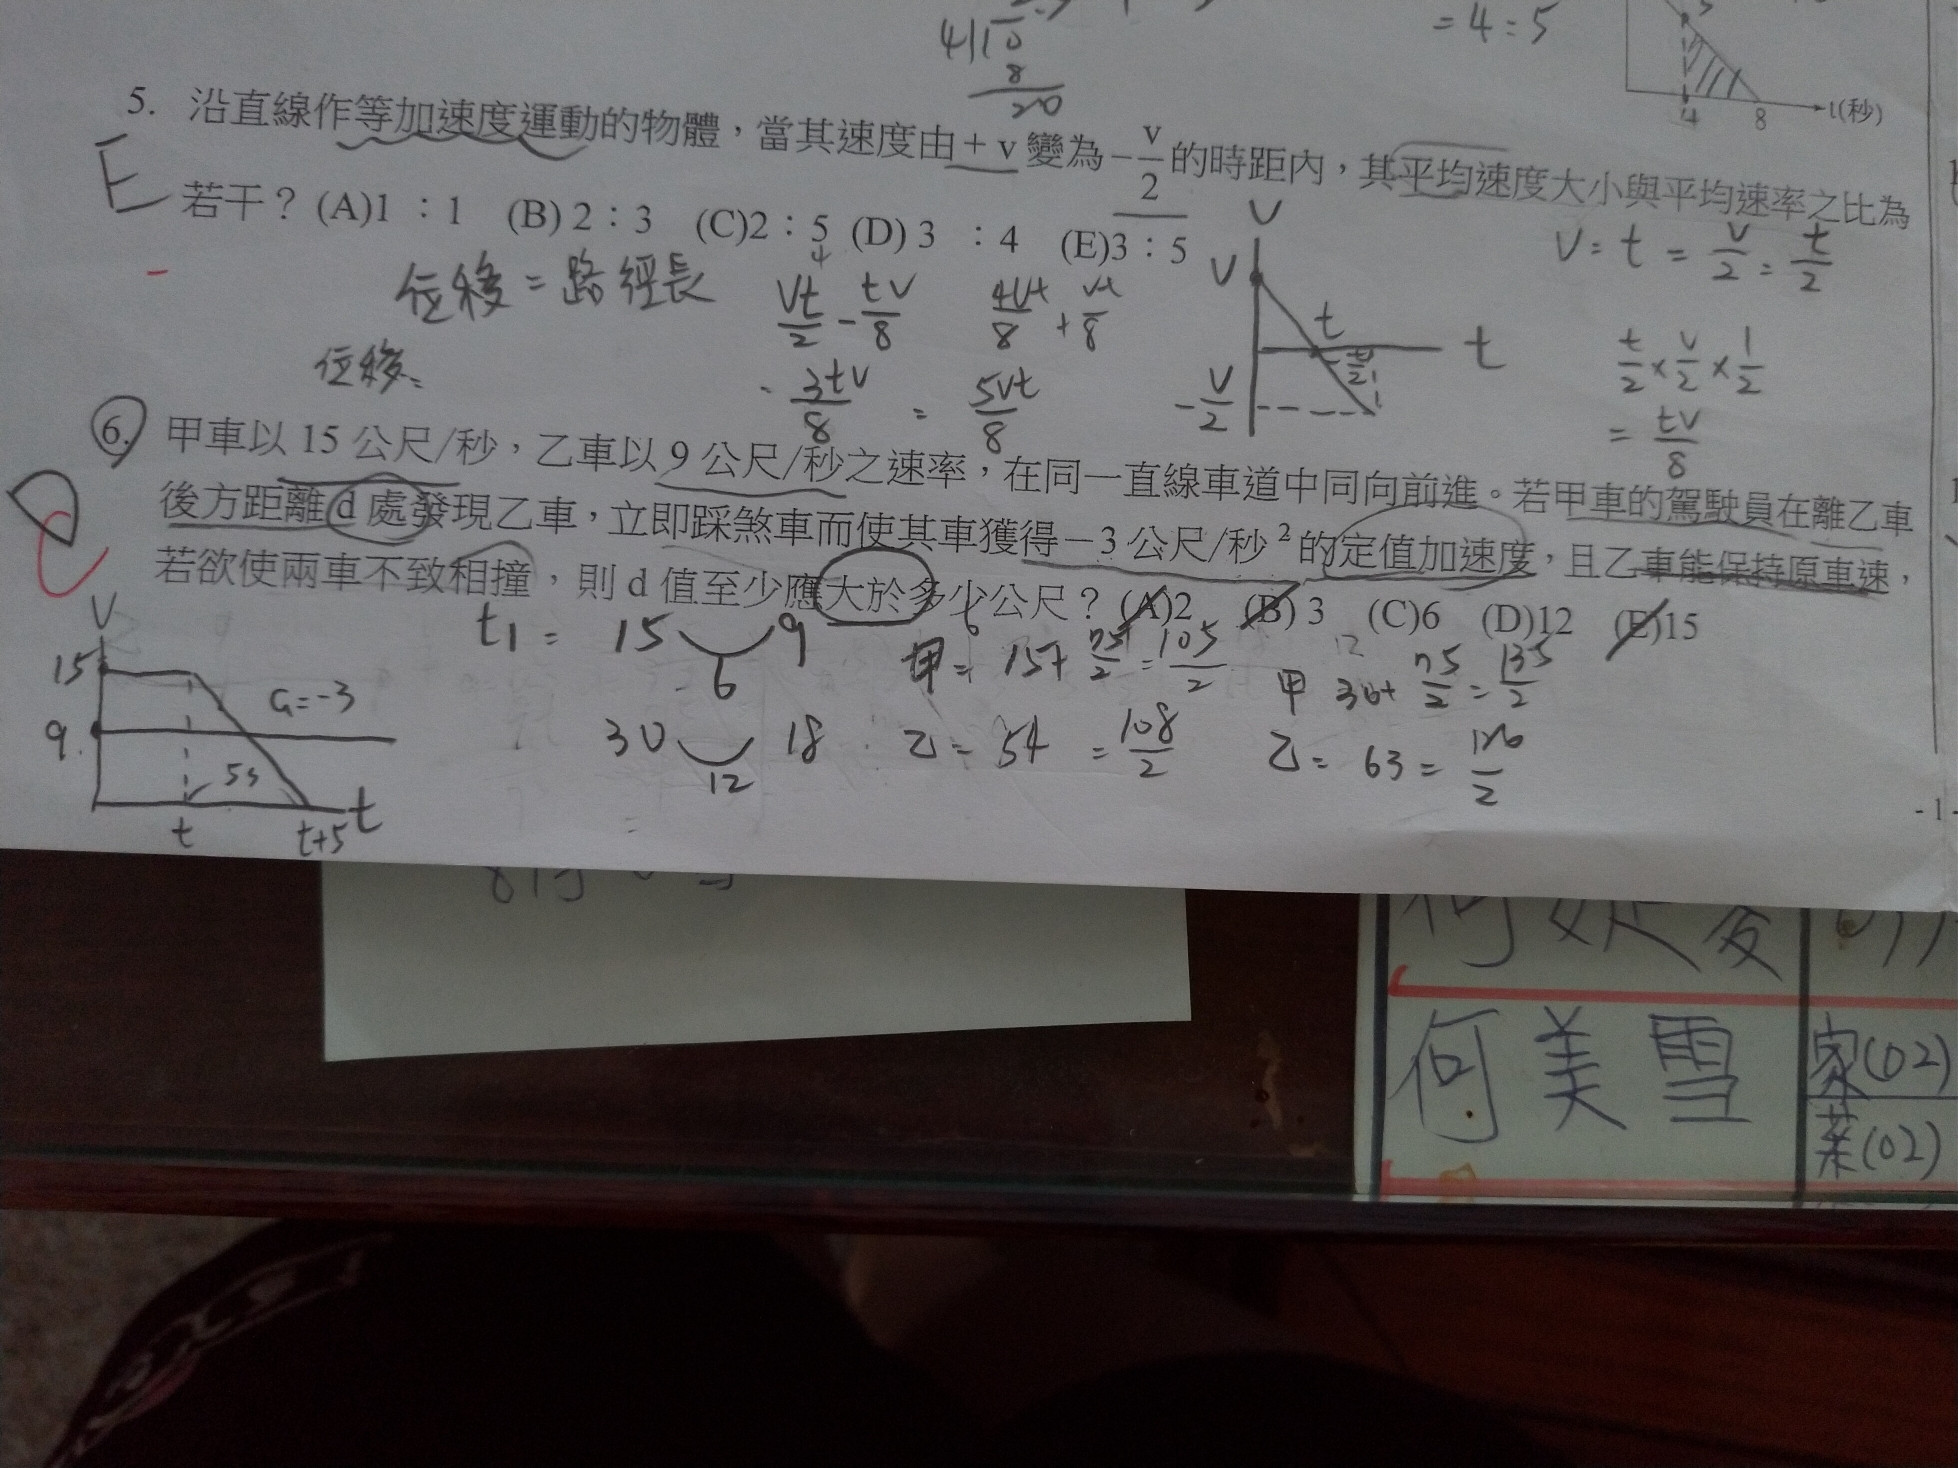 4 10
8
20
= 4 : 5
3
4 8 t(秒)
5. 沿直線作等加速度運動的物體，當其速度由+v變為-v/2的時距內，其平均速度大小與平均速率之比為
E
若干？(A)1 : 1 (B) 2 : 3 (C)2 : 5 (D) 3 : 4 (E)3 : 5
V = t = V/2 = t/2
位移 = 路徑長 Vt/2 - tV/8 4Vt/8 + Vt/8
V V t t/2 t -V/2
t/2 × V/2 × 1/2
位移=
3tV/8 = 5Vt/8
= tV/8
6. 甲車以 15 公尺/秒，乙車以 9 公尺/秒之速率，在同一直線車道中同向前進。若甲車的駕駛員在離乙車
後方距離 d 處發現乙車，立即踩煞車而使其車獲得－3 公尺/秒²的定值加速度，且乙車能保持原車速，
C
若欲使兩車不致相撞，則 d 值至少應大於多少公尺？(A)2 (B) 3 (C)6 (D)12 (E)15
t1 = 15 9
6
甲= 15+ 75/2 = 105/2
甲 30+ 75/2 = 135/2
30 18
12
乙= 54 = 108/2
乙= 63 = 126/2
V
15
a=-3
9
5s
t t+5 t
- 1 -
何美雪
家(02)
菜(02)